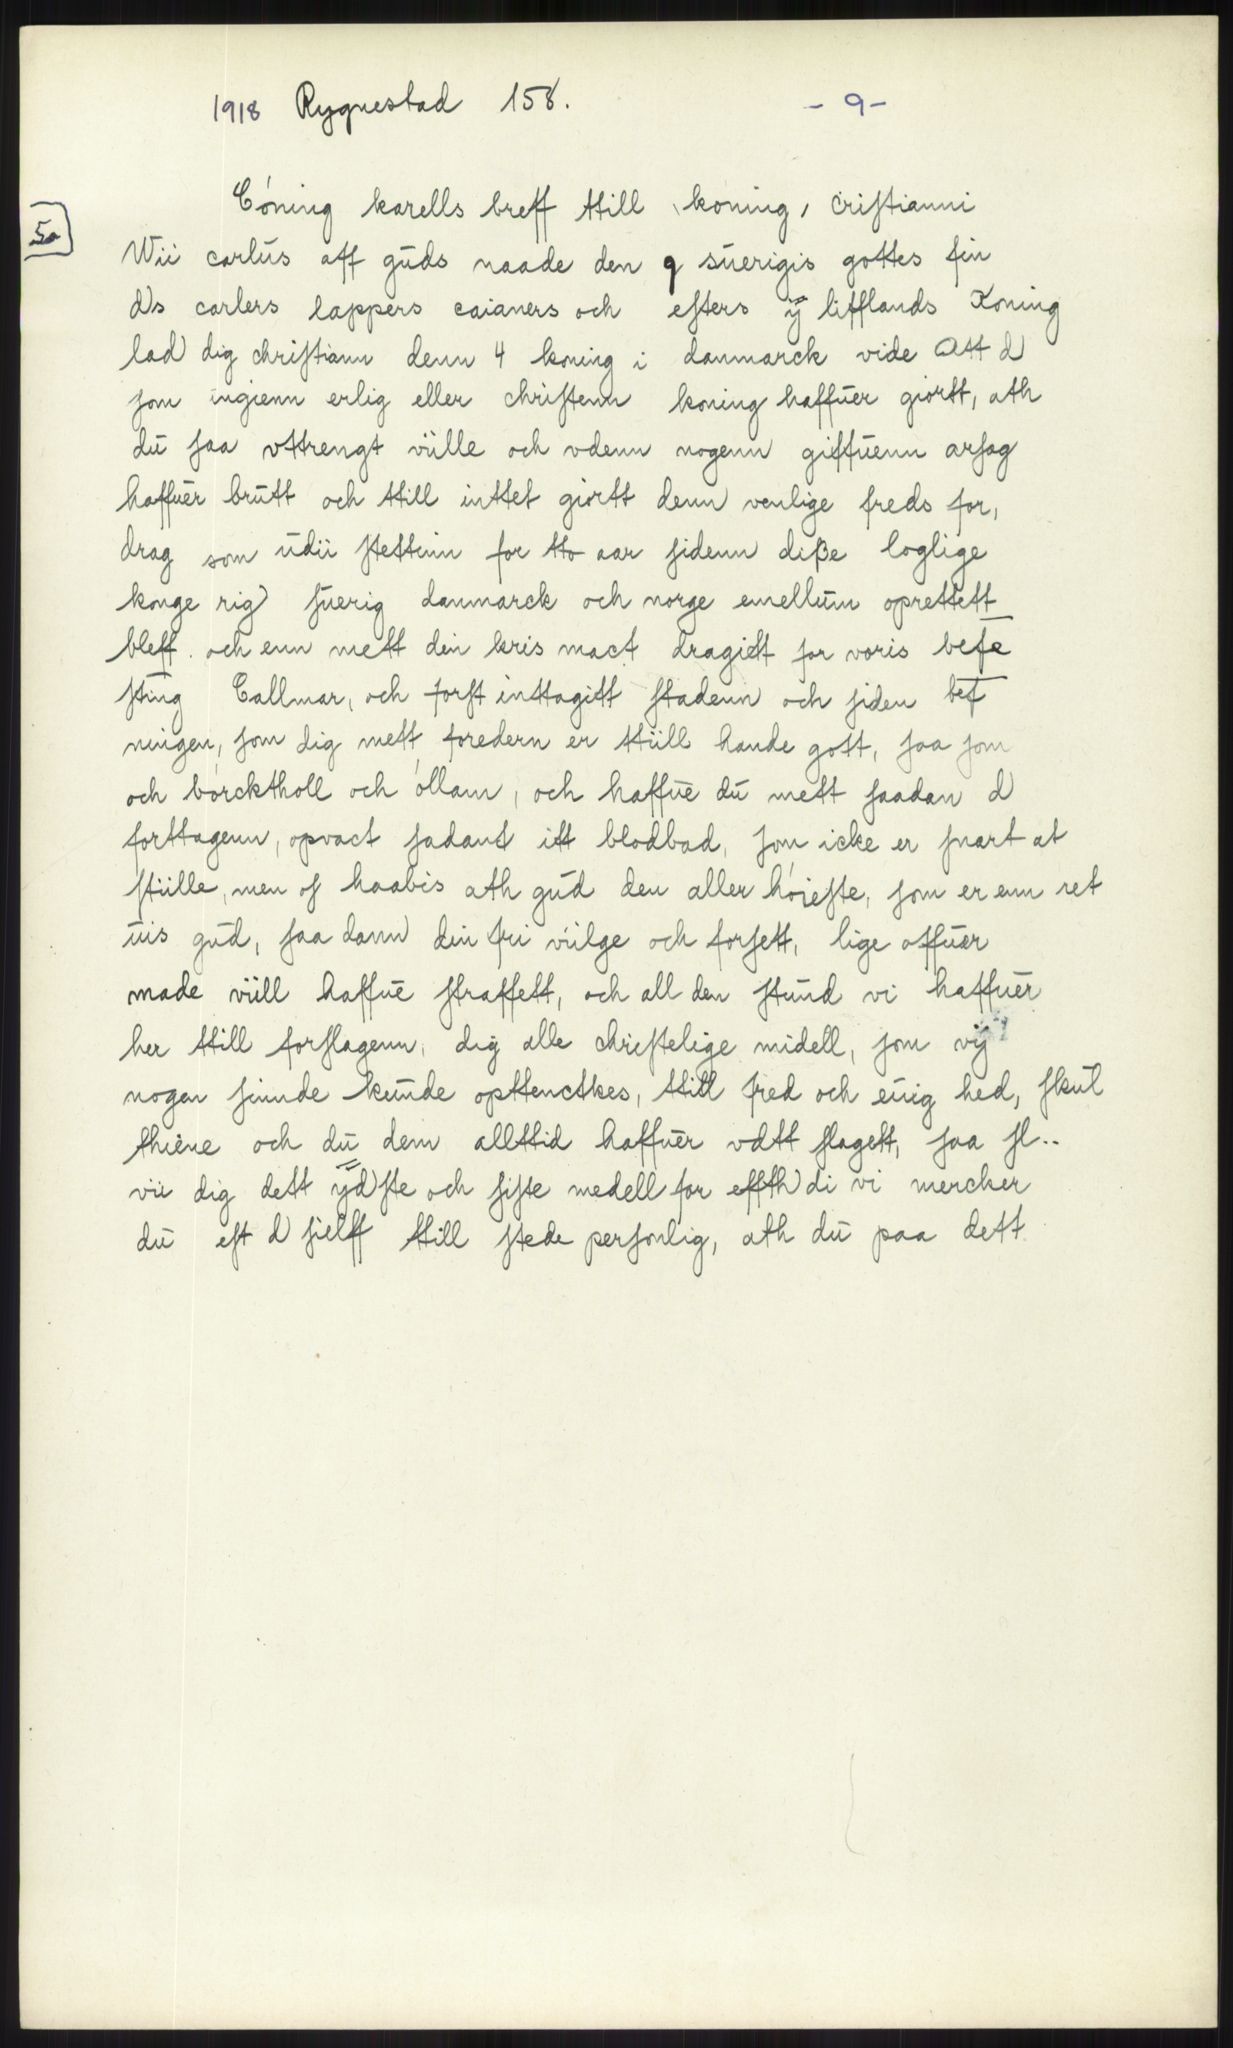 1918 Rygnestad 158. - 9 -
5a
Cóning karells breff ttill koning, cristianni
Wii carlus aff guds naade den 9 suerigis gottes fin
ds carlers lappers caianers och efters ÿ lifflands Koning
lad dig christiann denn 4 koning i danmarck vide Att d
som ingienn erlig eller christenn koning haffuer giortt, ath
du saa vttrengt viille och vdenn nogenn giffuenn arsag
haffuer brutt och ttill inttet giortt denn venlige freds for,
drag som udii stettiin for tto aar sidenn diße loglige
konge rig suerig danmarck och norge emellum oprettett
bleff. och enn mett din kris mact dragiett for voris befe
sting Callmar, och forst inttagitt stadenn och siden bef
ningen, som dig mett foredern er ttiill hande gott, saa som
och bórcktholl och óllam, och haffue du mett saadan d
forttagenn, opvact sadant itt blodbad, som icke er snart at
stiille, men of haabis ath gud den aller hóieste, som er enn ret
uis gud, saa dann din fri viilge och forsett, lige offuer
made viill haffue straffett, och all den stund vi haffuer
her ttill forslagenn, dig alle christelige midell, som vij
nogen sinnde kunde opttenctkes, ttill fred och enig hed, skul
thiene och du dem allttid haffuer vdtt slagett, saa sl..
vii dig dett ÿdste och siste medell for effth di vi mercker
du est d sielff ttill stede personlig, ath du paa dett